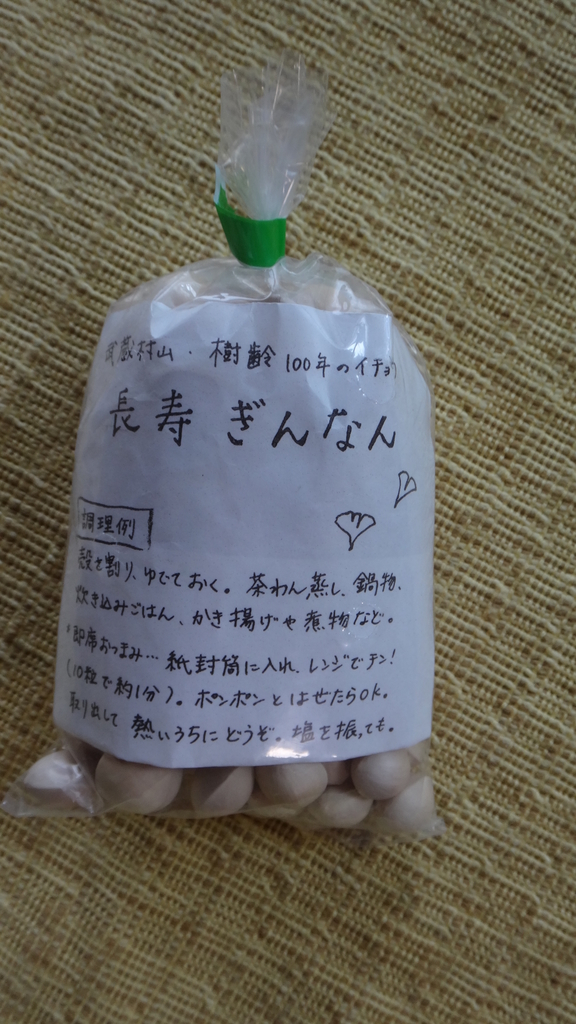 武蔵村山・樹齢100年のイチョウ
長寿 ぎんなん
調理例
殻を割り、ゆでておく。茶わん蒸し、鍋物、
炊き込みごはん、かき揚げや煮物など。
・即席おつまみ…紙封筒に入れ、レンジでチン!
(10粒で約1分)。ポンポンとはぜたらOK。
取り出して 熱いうちにどうぞ。塩を振っても。